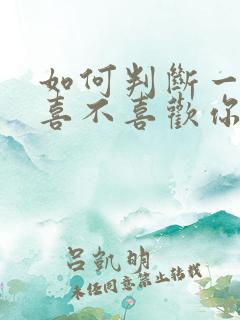 如何判斷一
喜不喜歡你
呂凱明
未經同意禁止轉載